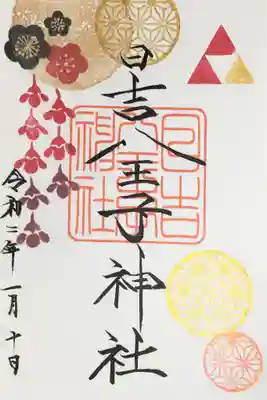 日吉八王子神社
令和二年一月十日
日吉
八王子
神社